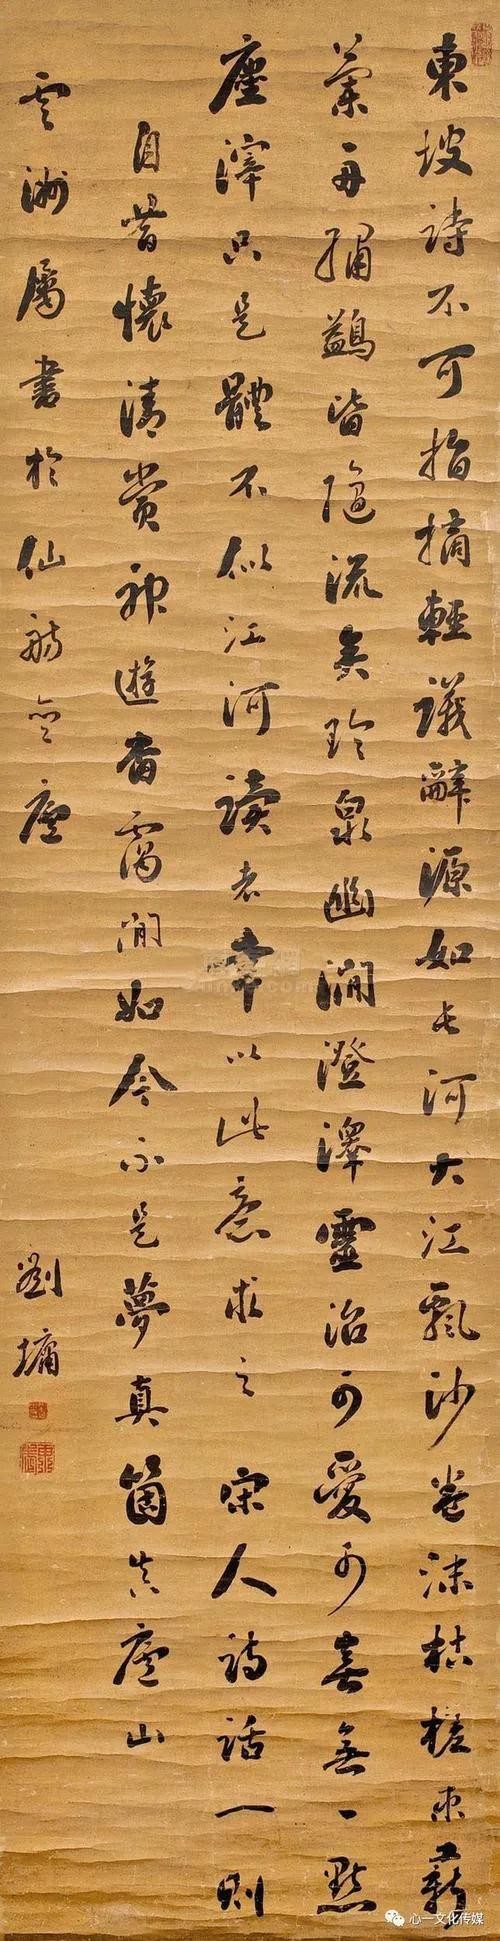 東坡詩不可指摘輕議辭源如長河大江飄沙卷沫枯槎束薪
蘭舟繡鷁皆隨流矣珍泉幽澗澄澤靈沼可愛可喜無一點
塵滓只是體不似江河讀者幸以此意求之 宋人詩話一則
自昔懷清賞神遊杳靄間如今不是夢真箇在廬山
雲洲屬書於仙舫
劉墉
心一文化传媒